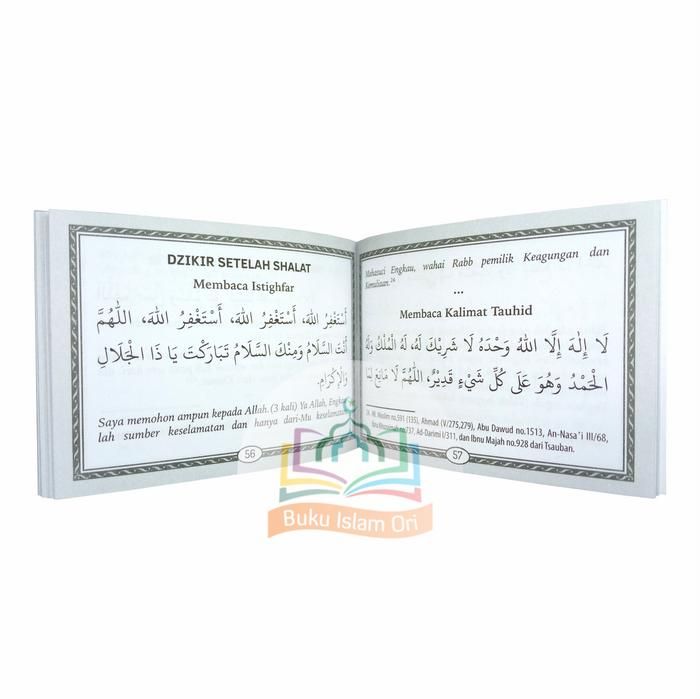 DZIKIR SETELAH SHALAT
Membaca Istighfar
أَسْتَغْفِرُ اللهَ، أَسْتَغْفِرُ اللهَ، أَسْتَغْفِرُ اللهَ، اَللّٰهُمَّ
أَنْتَ السَّلَامُ وَمِنْكَ السَّلَامُ تَبَارَكْتَ يَا ذَا الْجَلَالِ
وَالْإِكْرَامِ.
Saya memohon ampun kepada Allah. (3 kali) Ya Allah, Engkau
lah sumber keselamatan dan hanya dari-Mu keselamatan.
56
Mahasuci Engkau, wahai Rabb pemilik Keagungan dan
Kemuliaan.24
...
Membaca Kalimat Tauhid
لَا إِلٰهَ إِلَّا اللهُ وَحْدَهُ لَا شَرِيْكَ لَهُ، لَهُ الْمُلْكُ وَلَهُ
الْحَمْدُ وَهُوَ عَلَى كُلِّ شَيْءٍ قَدِيْرٌ، اَللّٰهُمَّ لَا مَانِعَ لِمَا
24. HR. Muslim no.591 (135), Ahmad (V/275,279), Abu Dawud no.1513, An-Nasa'i III/68,
Ibnu Khuzaimah no.737, Ad-Darimi I/311, dan Ibnu Majah no.928 dari Tsauban.
57
Buku Islam Ori